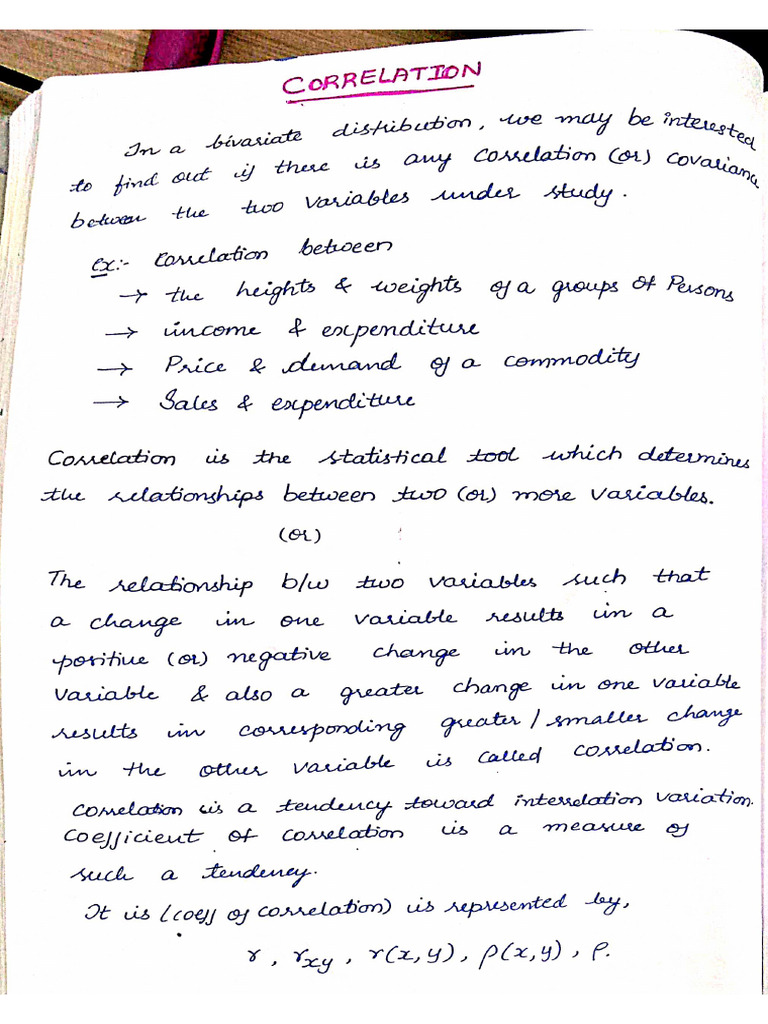 CORRELATION
In a bivariate distribution, we may be interested
to find out if there is any correlation (or) covariance
between the two variables under study.
Ex:- Correlation between
→ the heights & weights of a groups of Persons
→ income & expenditure
→ Price & demand of a commodity
→ Sales & expenditure
Correlation is the statistical tool which determines
the relationships between two (or) more variables.
(or)
The relationship b/w two variables such that
a change in one variable results in a
positive (or) negative change in the other
variable & also a greater change in one variable
results in corresponding greater / smaller change
in the other variable is called correlation.
Correlation is a tendency toward interrelation variation.
Coefficient of correlation is a measure of
such a tendency.
It is (coeff of correlation) is represented by,
r, rxy, r(x,y), ρ(x,y), ρ.